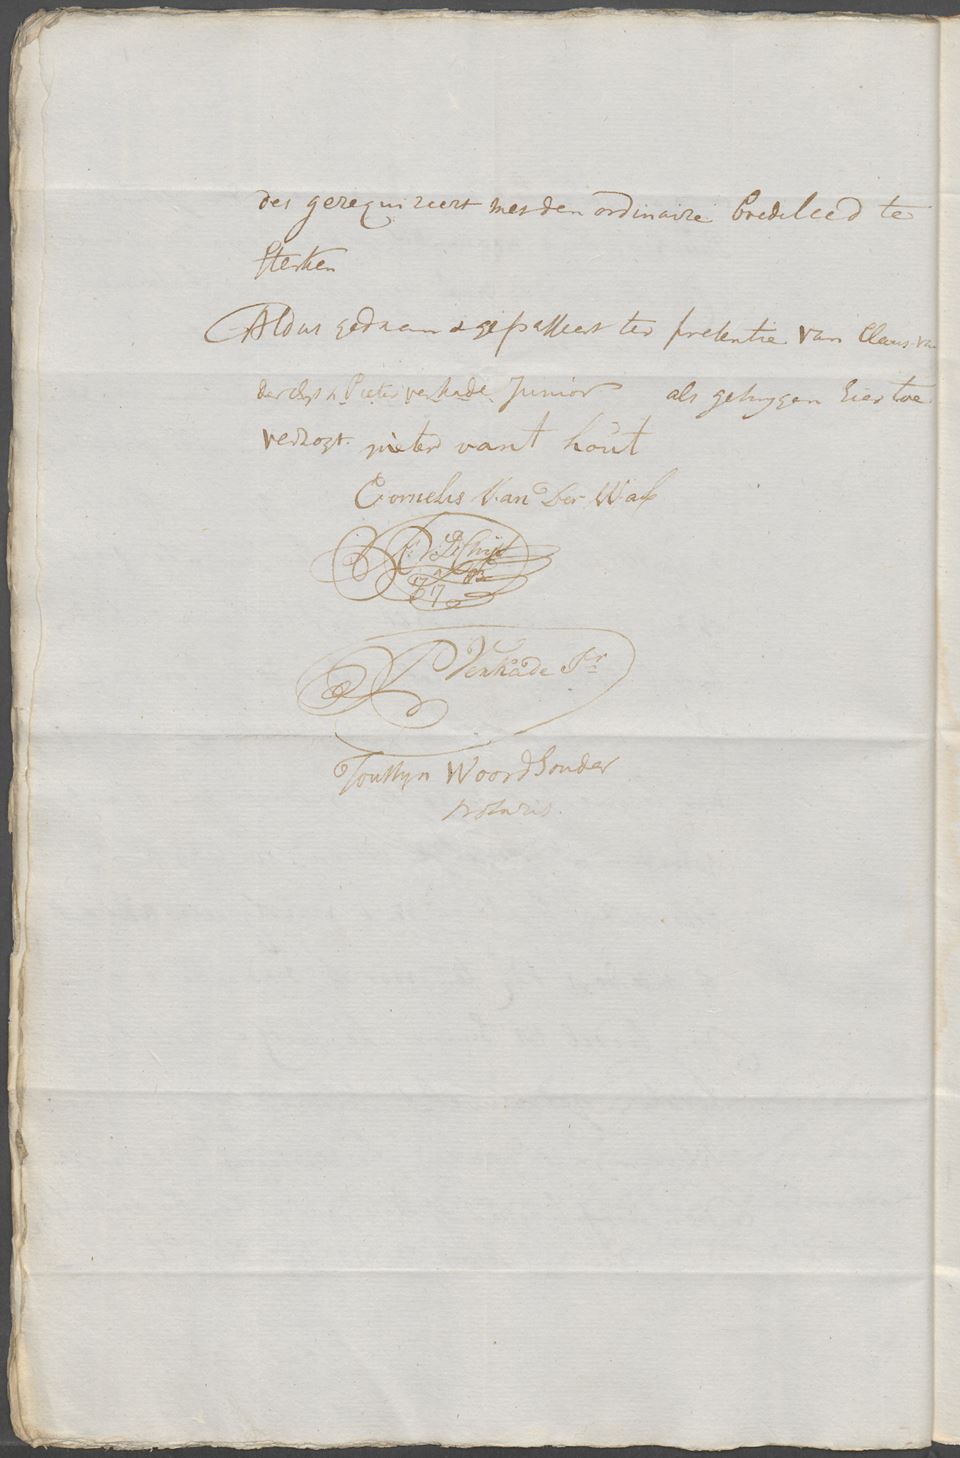 des gerequireert met den ordinaire Eedeleed te
sterken
Aldus gedaan & gepasseert ter presentie van Claas va
der & Pieter verkade Junior als getuygen hier toe
verzogt. pieter vant hout
Cornelis Van Der Wal
P Verkade Jr
Joustyn Woordhouder
Notaris.